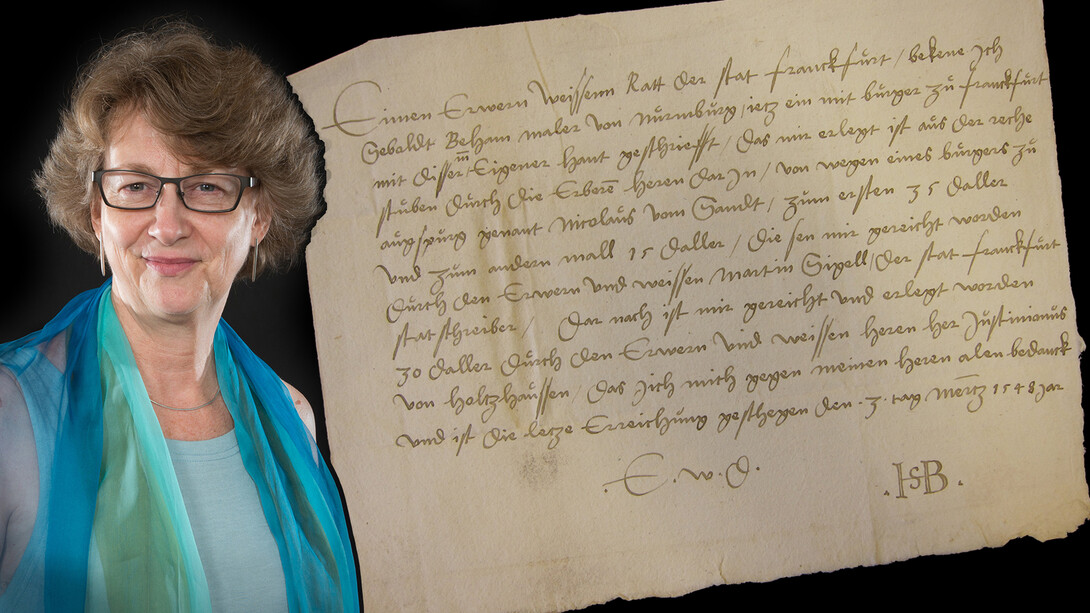 Einen Erwern Weissenn Ratt der stat franckfurt / bekene Ich
Sebaldt Beham maler von Nurmburg / ietz ein mit burger zu franckfurt
mit disser Eigener hant gesthriefft / das mir erlegt ist aus der reche
stuben durch die Erberē heren dar In / von wegen eines burgers zu
augspurg genant Nicolaus vom Sandt / zum ersten 35 daller
und zum andern mall 15 daller / die sen mir gereicht worden
durch den Erwern und weissen Martin Sigell / der stat franckfurt
statschreiber / Dar nach ist mir gereicht und erlegt worden
30 daller durch den Erwern und weissen heren her Justinianus
von holtzhaussen / das Jich mich gegen meinen heren alen bedanck
und ist die letze Erreichung gesthegen den . 3 . tag Mertz 1548 jar
. E . w . d .
. HSB .